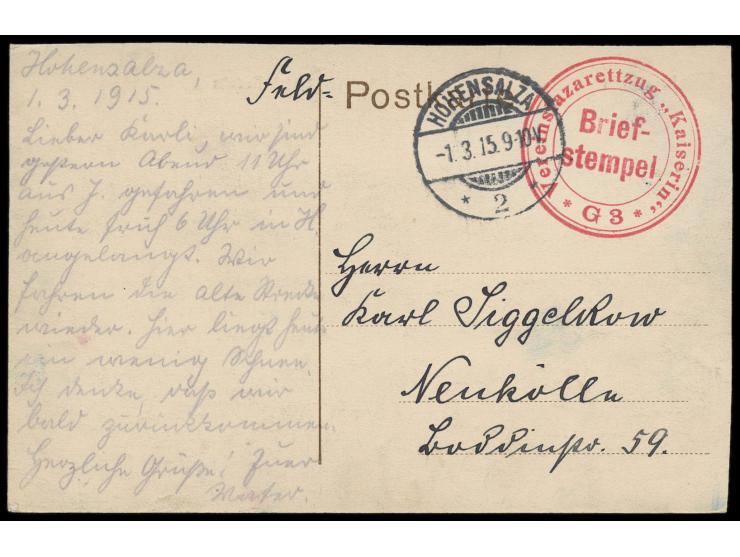 Hohensalza,
1. 3. 1915.
Lieber Karli, wir sind
gestern Abend 11 Uhr
aus J. gefahren und
heute früh 6 Uhr in H
angelangt. Wir
fahren die alte Strecke
wieder. Hier liegt heute
ein wenig Schnee.
Ich denke, daß wir
bald zurückkommen.
Herzliche Grüße! Euer
Vater.
Feld-
Postkarte
HOHENSALZA
-1. 3. 15. 9-10V.
* 2 *
Vereinslazarettzug „Kaiserin“
Brief-
stempel
* G 3 *
Herrn
Karl Siggelkow
Neukölln
Boddinstr. 59.